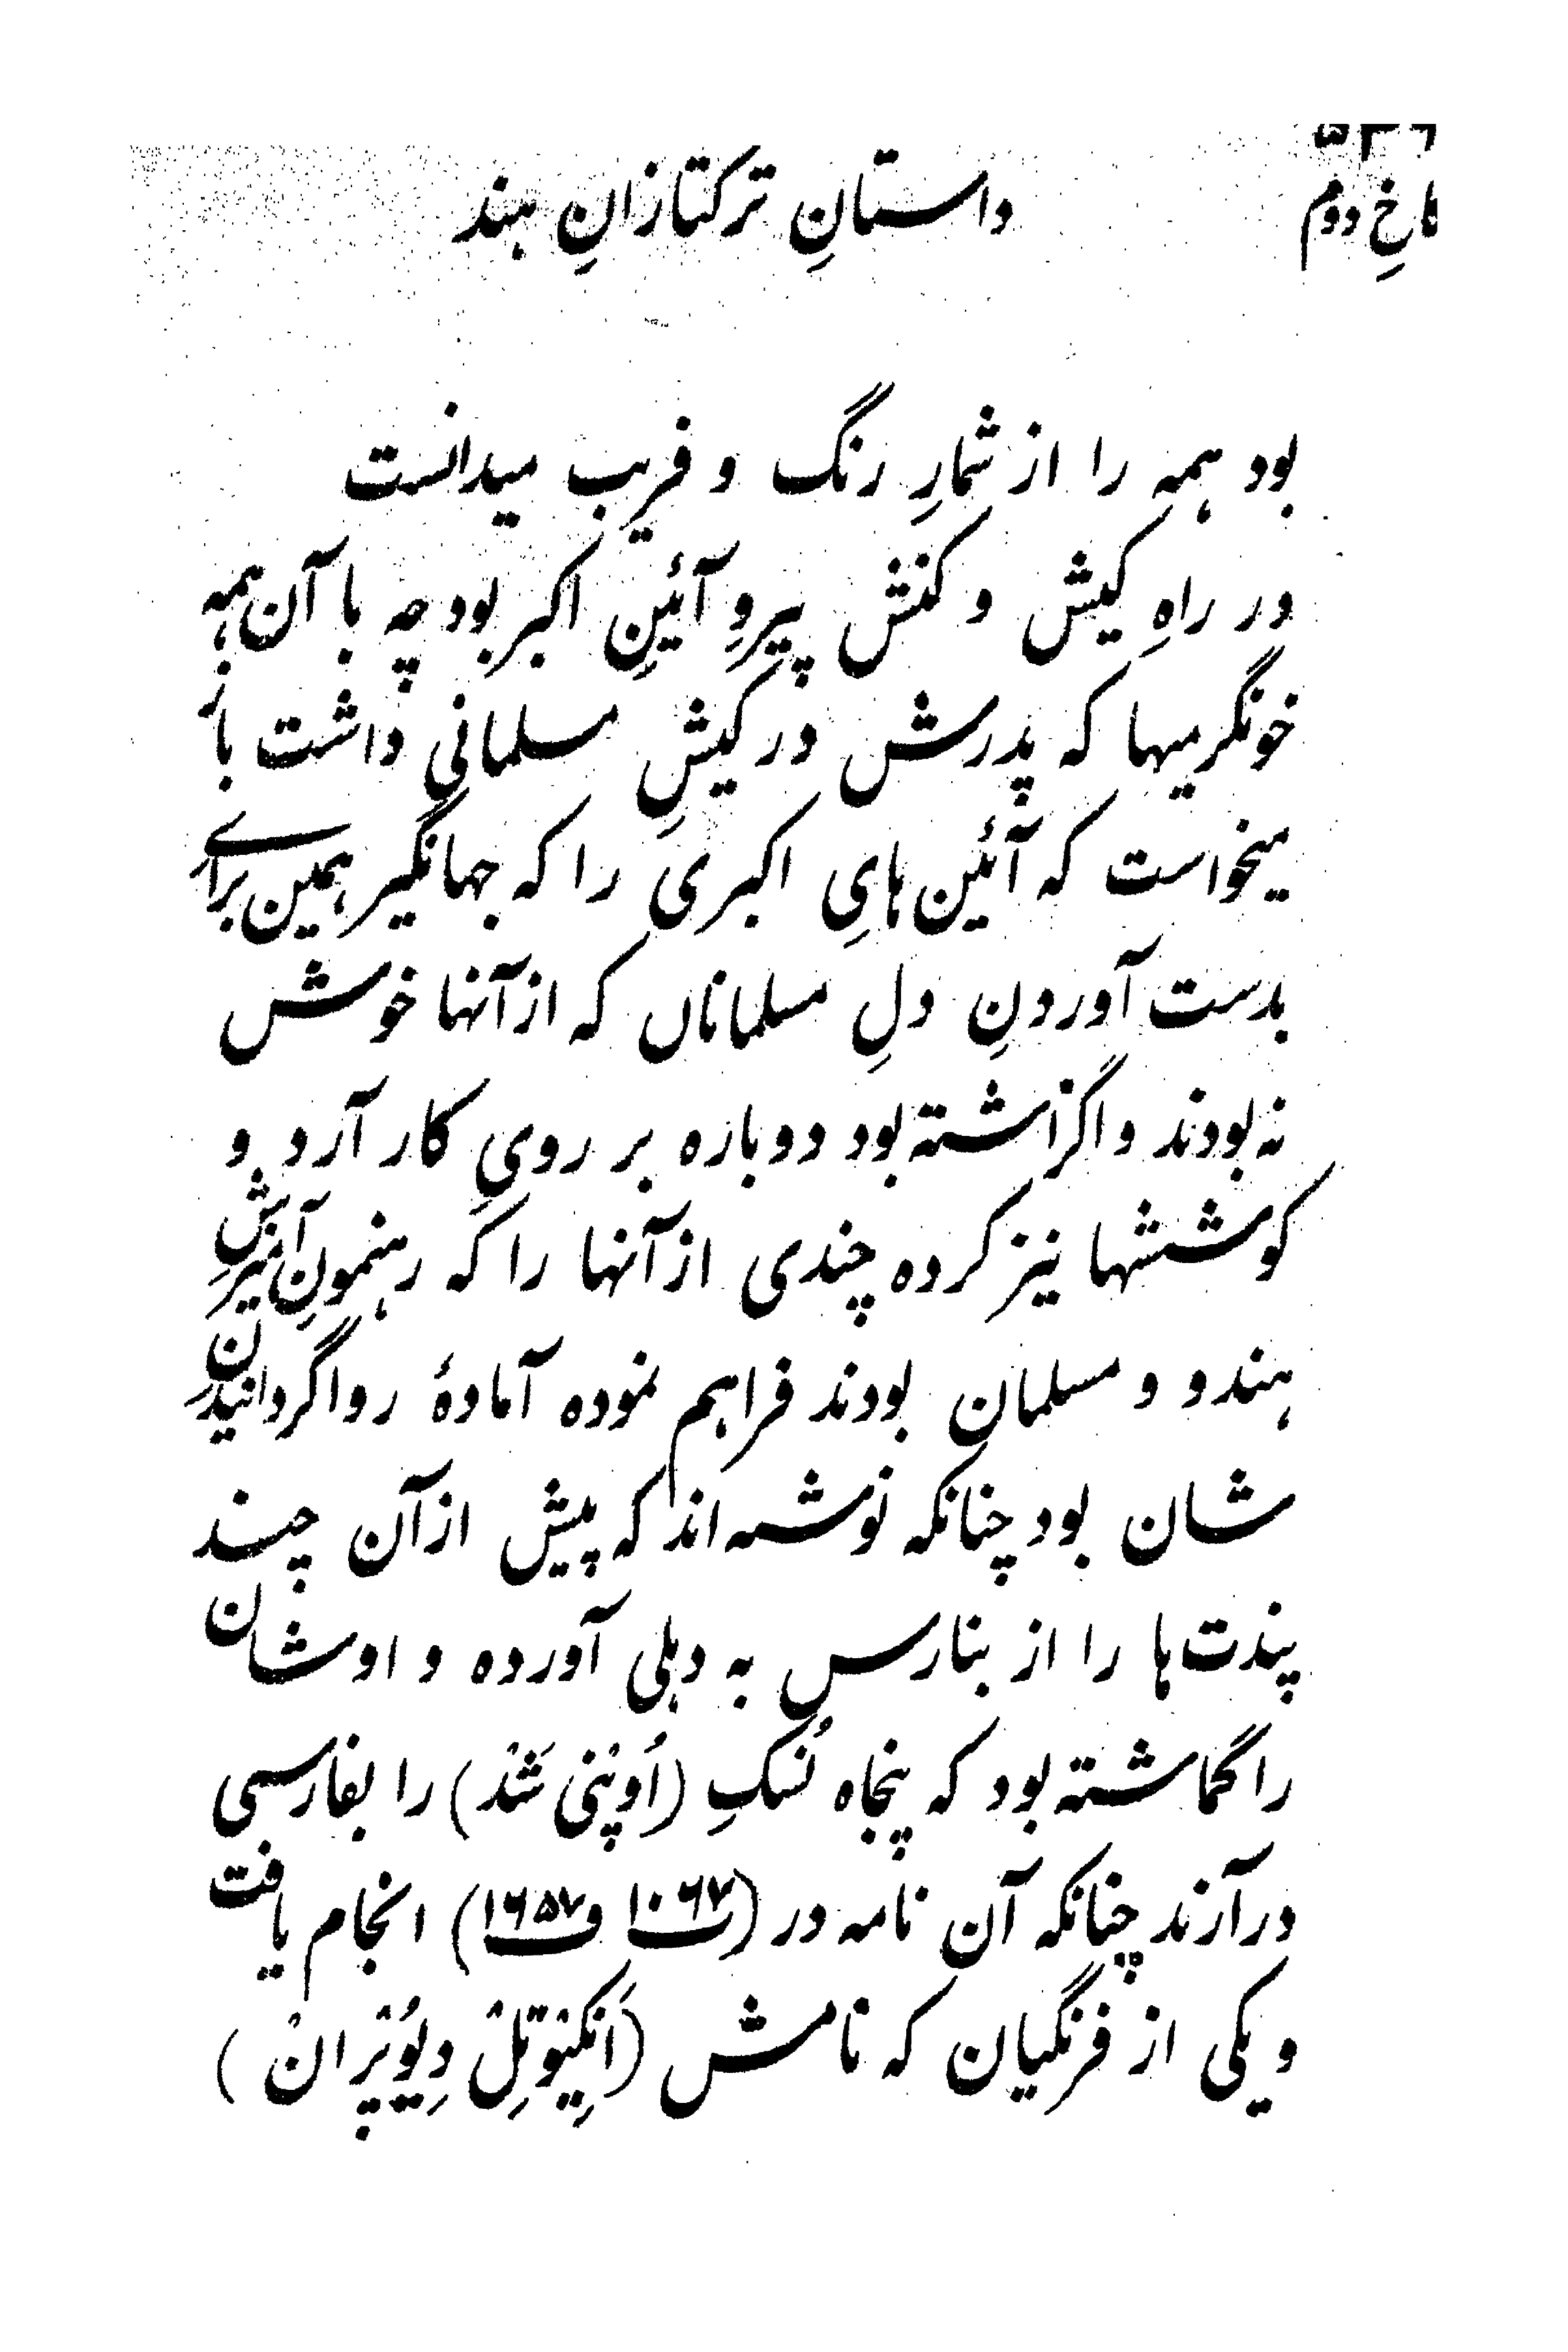 کاخِ دوم داستانِ ترکتازانِ هند
بود همه را از شمارِ رنگ و فریب میدانست
در راهِ کیش و کنش پیروِ آئینِ اکبر بود چه با آن همه
خونگرمیها که پدرش در کیشِ مسلمانی داشت باز
میخواست که آئین هایِ اکبری را که جهانگیر همین برای
بدست آوردنِ دلِ مسلمانان که از آنها خوش
نه بودند واگزاشته بود دوباره بر رویِ کار آرد و
کوششها نیز کرده چندی از آنها را که رهنمونِ آمیزشِ
هندو و مسلمان بودند فراهم نموده آمادهٔ رواگردانیدن
شان بود چنانکه نوشته اند که پیش از آن چند
پندت ها را از بنارس به دهلی آورده و اوشان
را گماشته بود که پنجاه نُسکِ (اُوپَنی شَدْ) را بفارسی
در آرند چنانکه آن نامه در (۱۰۶۷ و ۱۶۵۷) انجام یافت
و یکی از فرنگیان که نامش (اَنکِیْوتِلْ دِیوُپْرانْ)